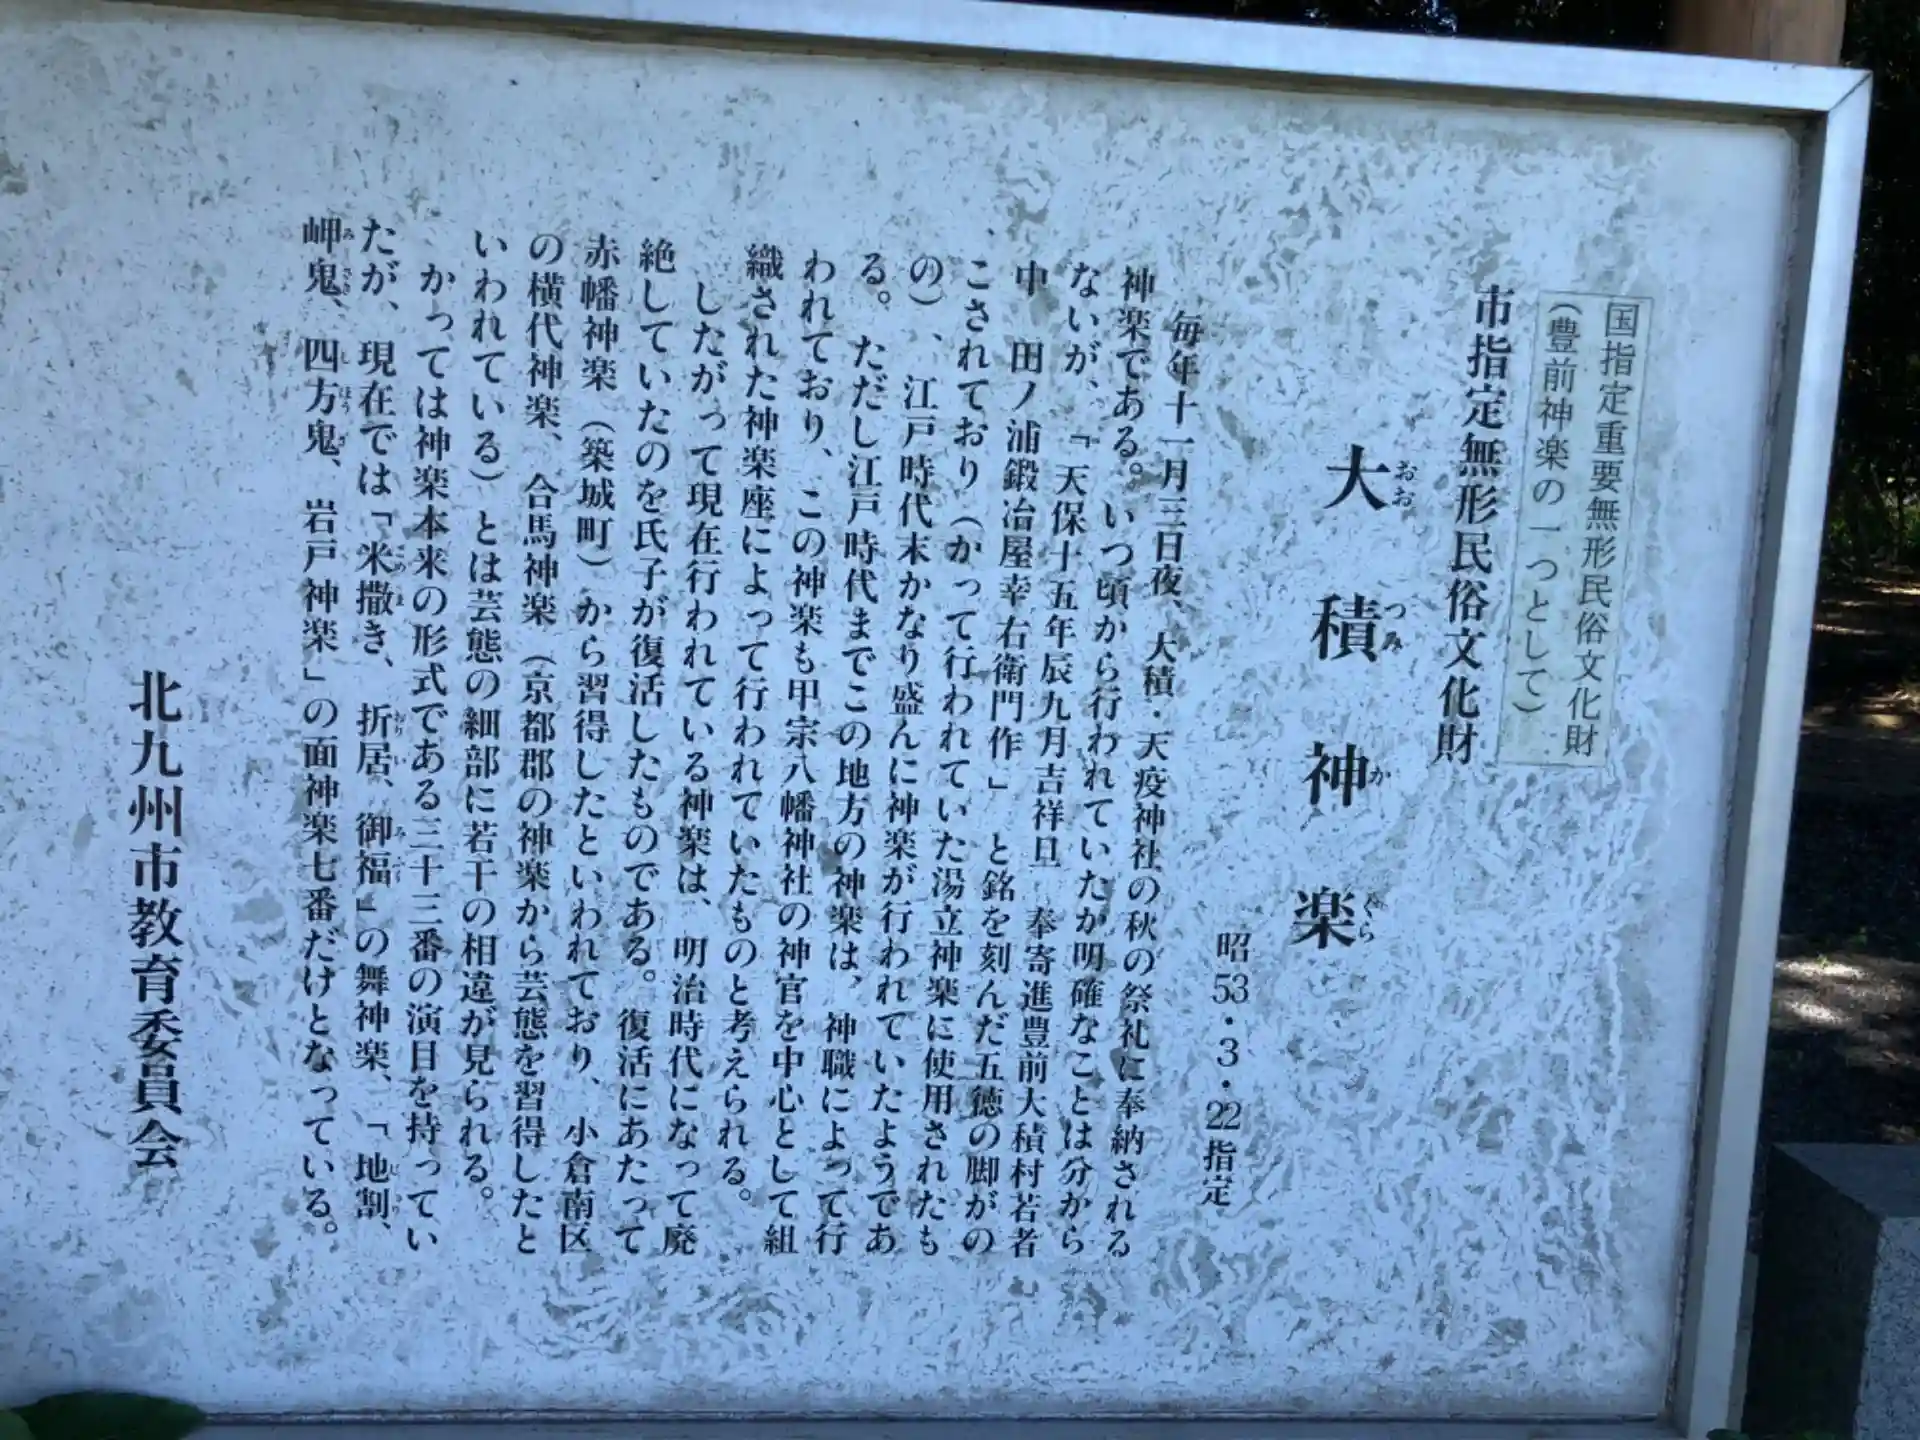 国指定重要無形民俗文化財
(豊前神楽の一つとして)
市指定無形民俗文化財
大積神楽
おおつみかぐら
昭53・3・22指定
毎年十一月三日夜、大積・天疫神社の秋の祭礼に奉納される
神楽である。いつ頃から行われていたか明確なことは分から
ないが、「天保十五年辰九月吉祥旦 奉寄進豊前大積村若者
中 田ノ浦鍛冶屋幸右衛門作」と銘を刻んだ五徳の脚がの
こされており(かって行われていた湯立神楽に使用されたも
の)、江戸時代末かなり盛んに神楽が行われていたようであ
る。ただし江戸時代までこの地方の神楽は、神職によって行
われており、この神楽も甲宗八幡神社の神官を中心として組
織された神楽座によって行われていたものと考えられる。
したがって現在行われている神楽は、明治時代になって廃
絶していたのを氏子が復活したものである。復活にあたって
赤幡神楽(築城町)から習得したといわれており、小倉南区
の横代神楽、合馬神楽(京都郡の神楽から芸態を習得したと
いわれている)とは芸態の細部に若干の相違が見られる。
かっては神楽本来の形式である三十三番の演目を持ってい
たが、現在では「米撒き、折居、御福」の舞神楽、「地割、
岬鬼、四方鬼、岩戸神楽」の面神楽七番だけとなっている。
北九州市教育委員会